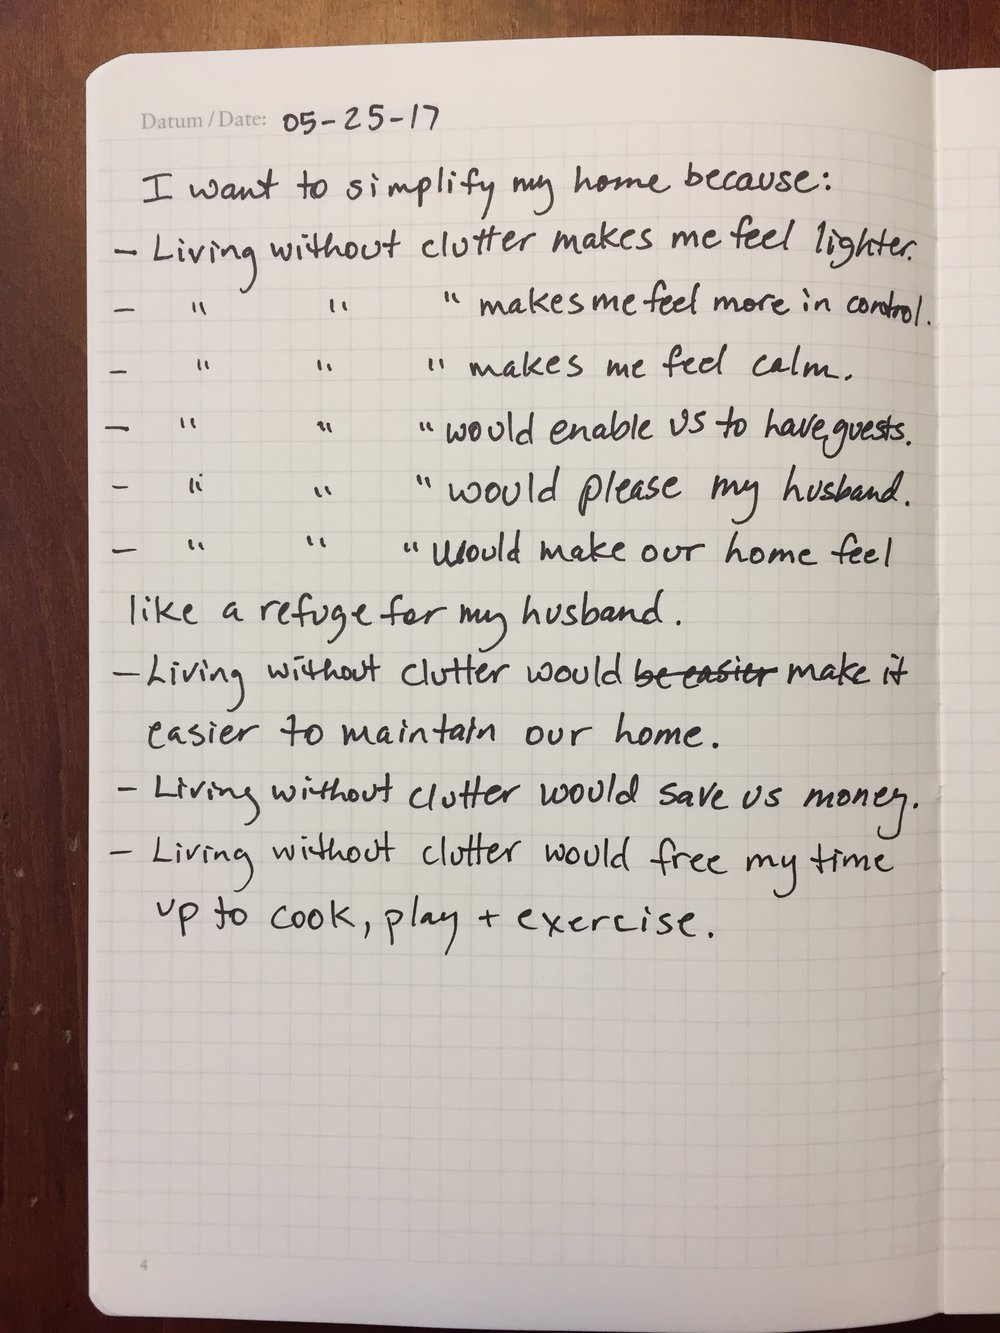 Datum / Date: 05-25-17
I want to simplify my home because:
- Living without clutter makes me feel lighter.
- " " " makes me feel more in control.
- " " " makes me feel calm.
- " " " would enable us to have guests.
- " " " would please my husband.
- " " " would make our home feel
like a refuge for my husband.
- Living without clutter would be easier make it
easier to maintain our home.
- Living without clutter would save us money.
- Living without clutter would free my time
up to cook, play + exercise.
4